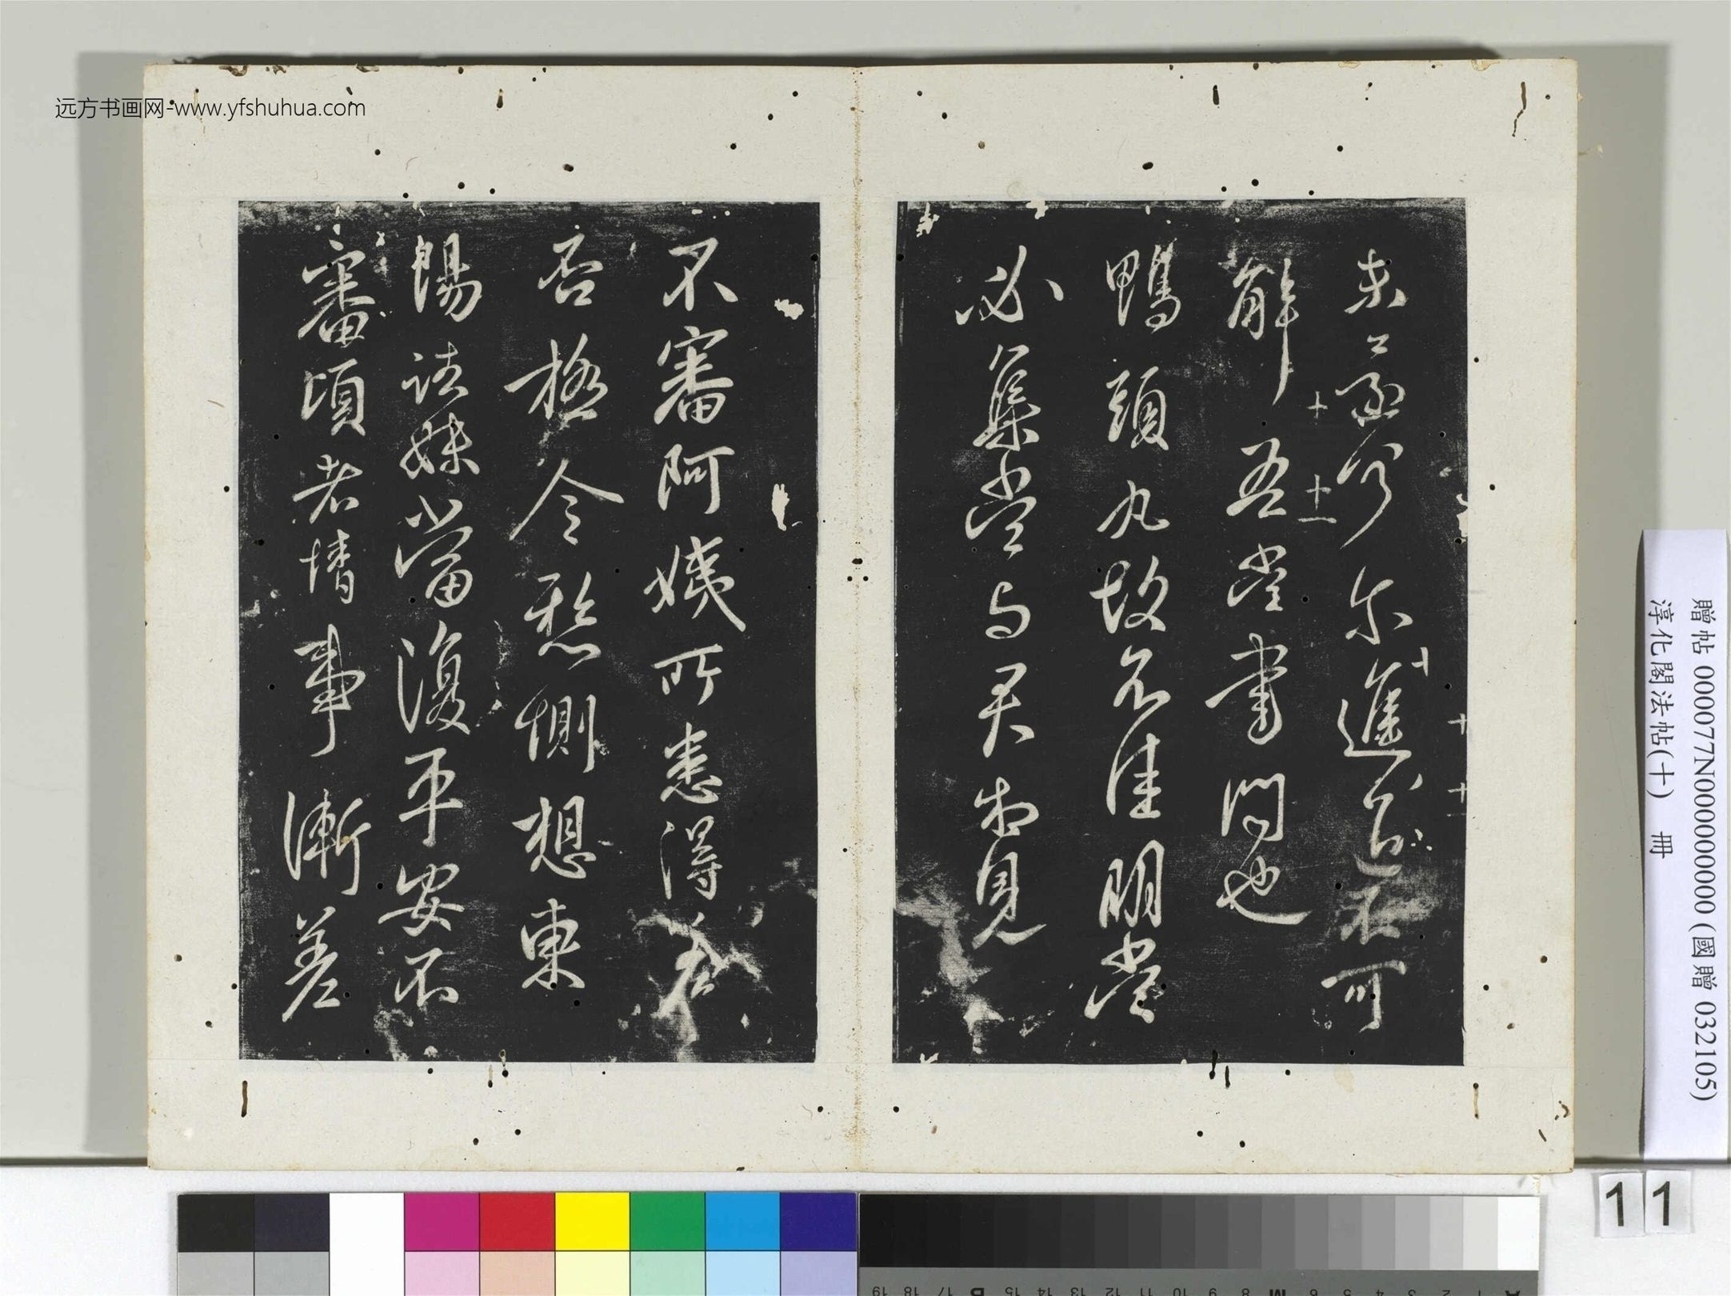 远方书画网-www.yfshuhua.com
尔進退不可
解吾當書問也
鴨頭丸故不佳明當
必集當与君相見
不審阿姨所患得差
否極令愁惻想東
陽諸妹當復平安不
審頃者情事漸差
贈帖 000077N000000000 (國贈 032105)
淳化閣法帖(十) 冊
11